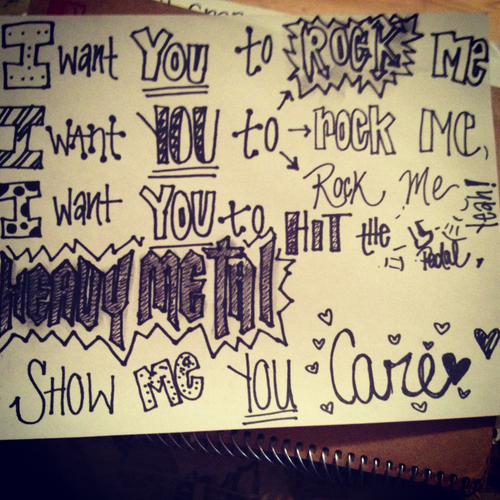 I want YOU to ROCK Me
I WANT YOU to rock Me,
Rock Me
I want YOU to HIT the Pedal, Yeah!
HEAVY METAL
SHOW Me YOU Care